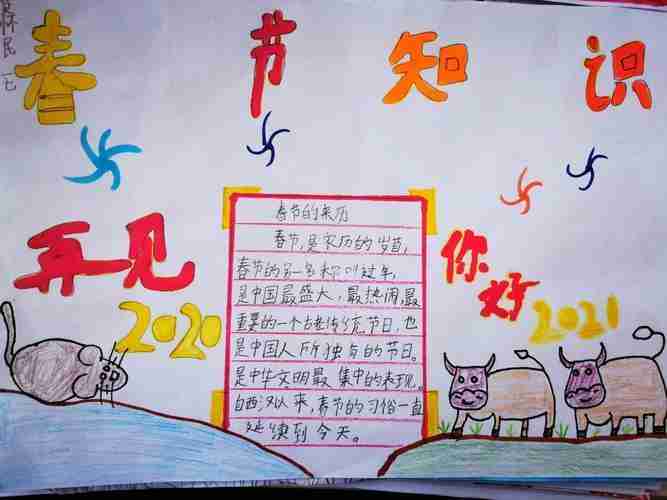 春节知识
再见
2020
春节的来历
春节,是农历的岁首,
春节的另一名称叫过年,
是中国最盛大,最热闹,最
重要的一个古老传统节日,也
是中国人所独有的节日。
是中华文明最集中的表现。
自西汉以来,春节的习俗一直
延续到今天。
你好
2021